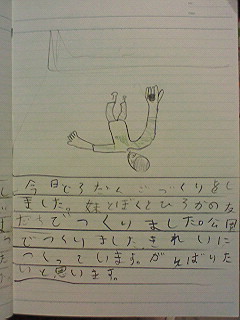 今日どろだんごづくりをし
ました。妹とぼくとひろかの友
だちでつくりました。公園
でつくりましたきれいに
つくっています。がんばりた
いと思います。